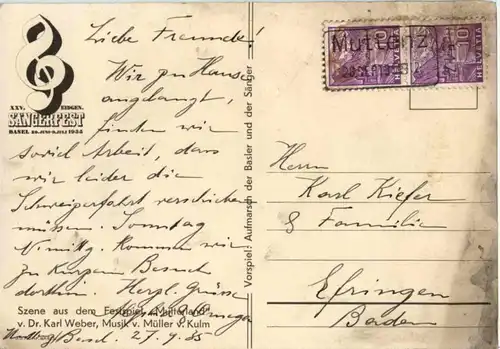 XXV. EIDGEN.
SÄNGERFEST
BASEL
1935
Liebe Freunde!
Wir zu Haus
angelangt,
finden wir
soviel Arbeit, dass
wir leider die
Schweizerfahrt verschieben
müssen. Sonntag
Kommen wir
zu kurzem Besuch
dorthin. Herzl. Grüsse
Szene aus dem Festspiel „Mailerland"
v. Dr. Karl Weber, Musik v. Müller v. Kulm
Basel. 27.9.35
Vorspiel: Aufmarsch der Basler und der Sänger
Muttenz
10
HELVETIA
10
HELVETIA
Herrn
Karl Kiefer
& Familie
Efringen
Baden